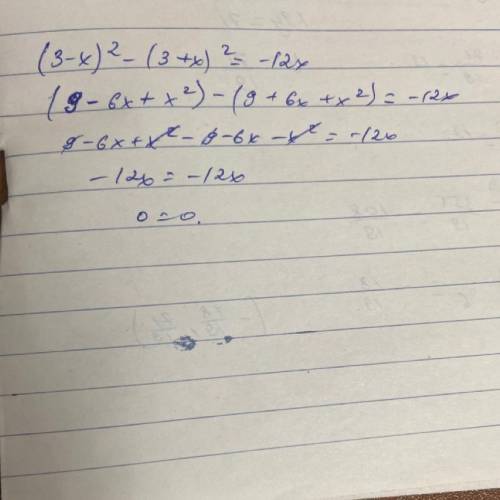 (3-x)² - (3+x)² = -12x
(9 - 6x + x²) - (9 + 6x + x²) = -12x
9 - 6x + x² - 9 - 6x - x² = -12x
-12x = -12x
0 = 0.